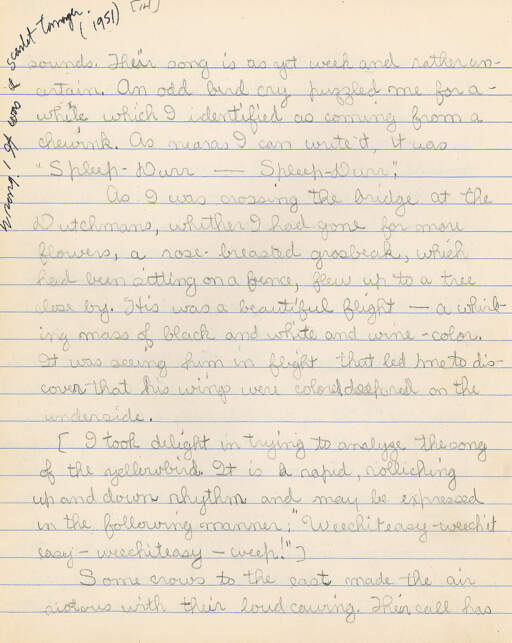 [14]
Wrong! It was a scarlet tanager. (1951)
sounds. Their song is as yt week and rather un-
certain. An odd bird cry puzzled me for a-
while which I identified as coming from a
chewink. As near as I can write it, it was
"Spleep-Durr — Spleep-Durr".
As I was crossing the bridge at the
Dutchmans, whither I had gone for more
flowers, a rose-breasted grosbeak, which
had been sitting on a fence, flew up to a tree
close by. His was a beautiful flight — a whirl-
ing mass of black and white and wine-color.
It was seeing him in flight that led me to dis-
cover that his wings were colored deep red on the
underside.
[ I took delight in trying to analyze the song
of the yellowbird. It is a rapid, rollicking
up and down rhythm and may be expressed
in the following manner; "Weechiteasy-weechit
easy-weechiteasy-weep!"]
Some crows to the east made the air
riotous with their loud cawing. Their call has